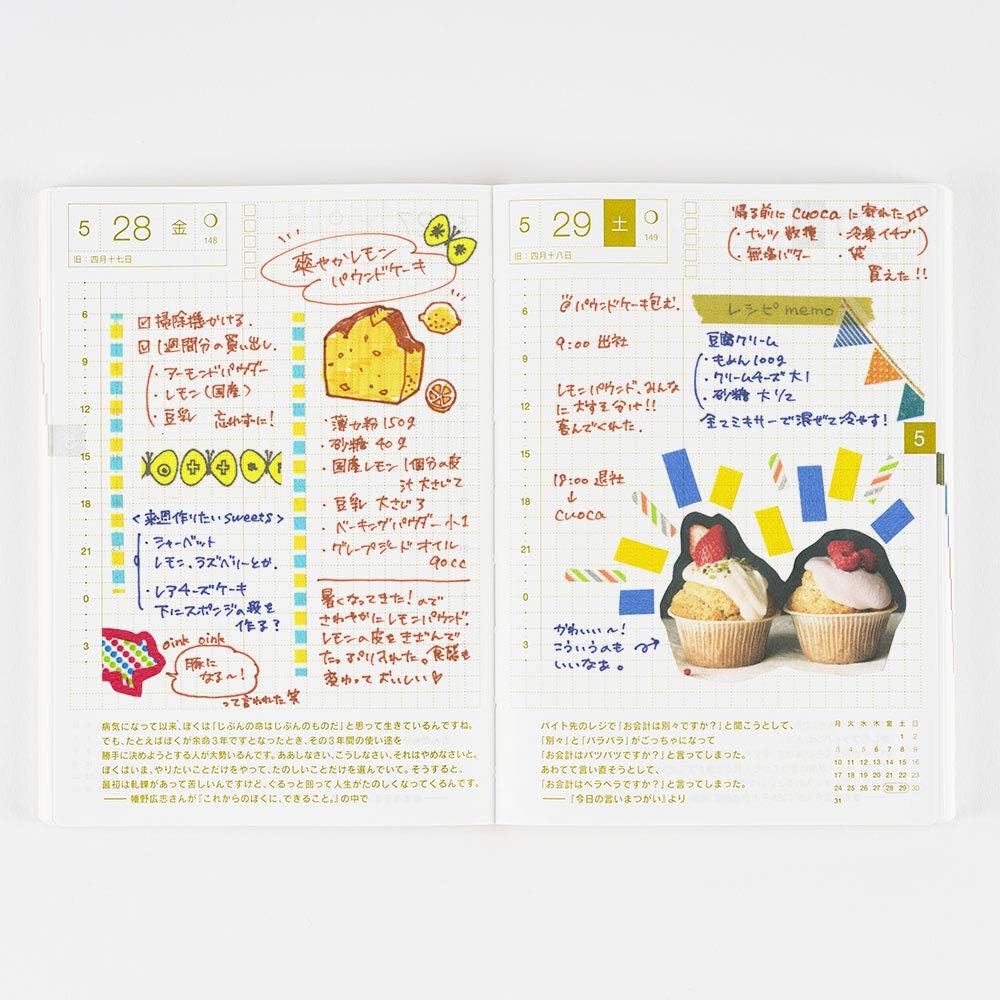 5 28 金
148
旧：四月十七日
爽やかレモン
パウンドケーキ
6
9
12
15
18
21
0
3
掃除機かける.
1週間分の買い出し.
・アーモンドパウダー
・レモン(国産)
・豆乳 忘れずに!
<来週作りたいsweets>
・シャーベット
レモン、ラズベリーとか.
・レアチーズケーキ
下にスポンジの段を
作る?
oink oink
豚に
なる〜!
って言われた笑
・薄力粉 150g
・砂糖 40g
・国産レモン 1個分の皮
汁 大さじ2
・豆乳 大さじ3
・ベーキングパウダー 小1
・グレープシードオイル
90cc
暑くなってきた!ので
さわやかにレモンパウンド.
レモンの皮をきざんで
食感も
変わっておいしい♡
病気になって以来、ぼくは「じぶんの命はじぶんのものだ」と思って生きているんですね。
でも、たとえばぼくが余命3年ですとなったとき、その3年間の使い途を
勝手に決めようとする人が大勢いるんです。ああしなさい、こうしなさい、それはやめなさいと。
ぼくはいま、やりたいことだけをやって、たのしいことだけを選んでいて。そうすると、
最初は軋轢があって苦しいんですけど、ぐるっと回って人生がたのしくなってくるんです。
——幡野広志さんが『これからのぼくに、できること。』の中で
5 29 土
149
旧：四月十八日
帰る前に cuoca に寄れた
・ナッツ数種 ・冷凍イチゴ
・無塩バター ・袋
買えた!!
6
9
12
15
18
21
0
3
パウンドケーキ包む.
9:00 出社
レモンパウンド、みんな
に大好を分け!!
喜んでくれた.
18:00 退社
↓
cuoca
レシピ memo
豆腐クリーム
・もめん 100g
・クリームチーズ 大1
・砂糖 大1/2
全てミキサーで混ぜて冷やす!
5
かわいい〜!
こういうのも
いいなぁ。
バイト先のレジで「お会計は別々ですか?」と聞こうとして、
「別々」と「バラバラ」がごっちゃになって
「お会計はバツバツですか?」と言ってしまった。
あわてて言い直そうとして、
「お会計はベラベラですか?」と言ってしまった。
——『今日の言いまつがい』より
月 火 水 木 金 土 日
1 2
3 4 5 6 7 8 9
10 11 12 13 14 15 16
17 18 19 20 21 22 23
24 25 26 27 28 29 30
31